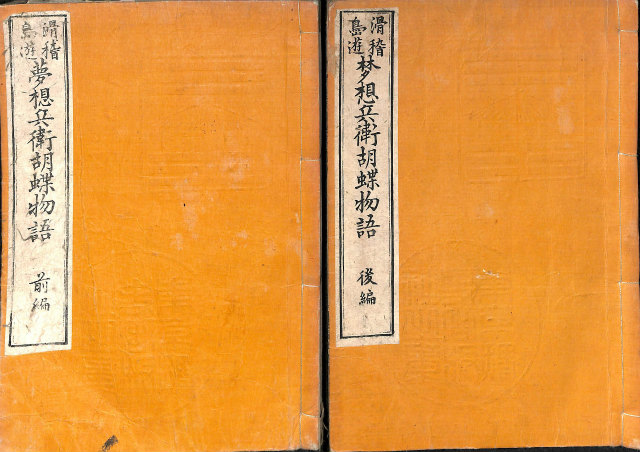 滑稽
島遊
夢想兵衛胡蝶物語
前編
滑稽
島遊
梦想兵衛胡蝶物語
後編